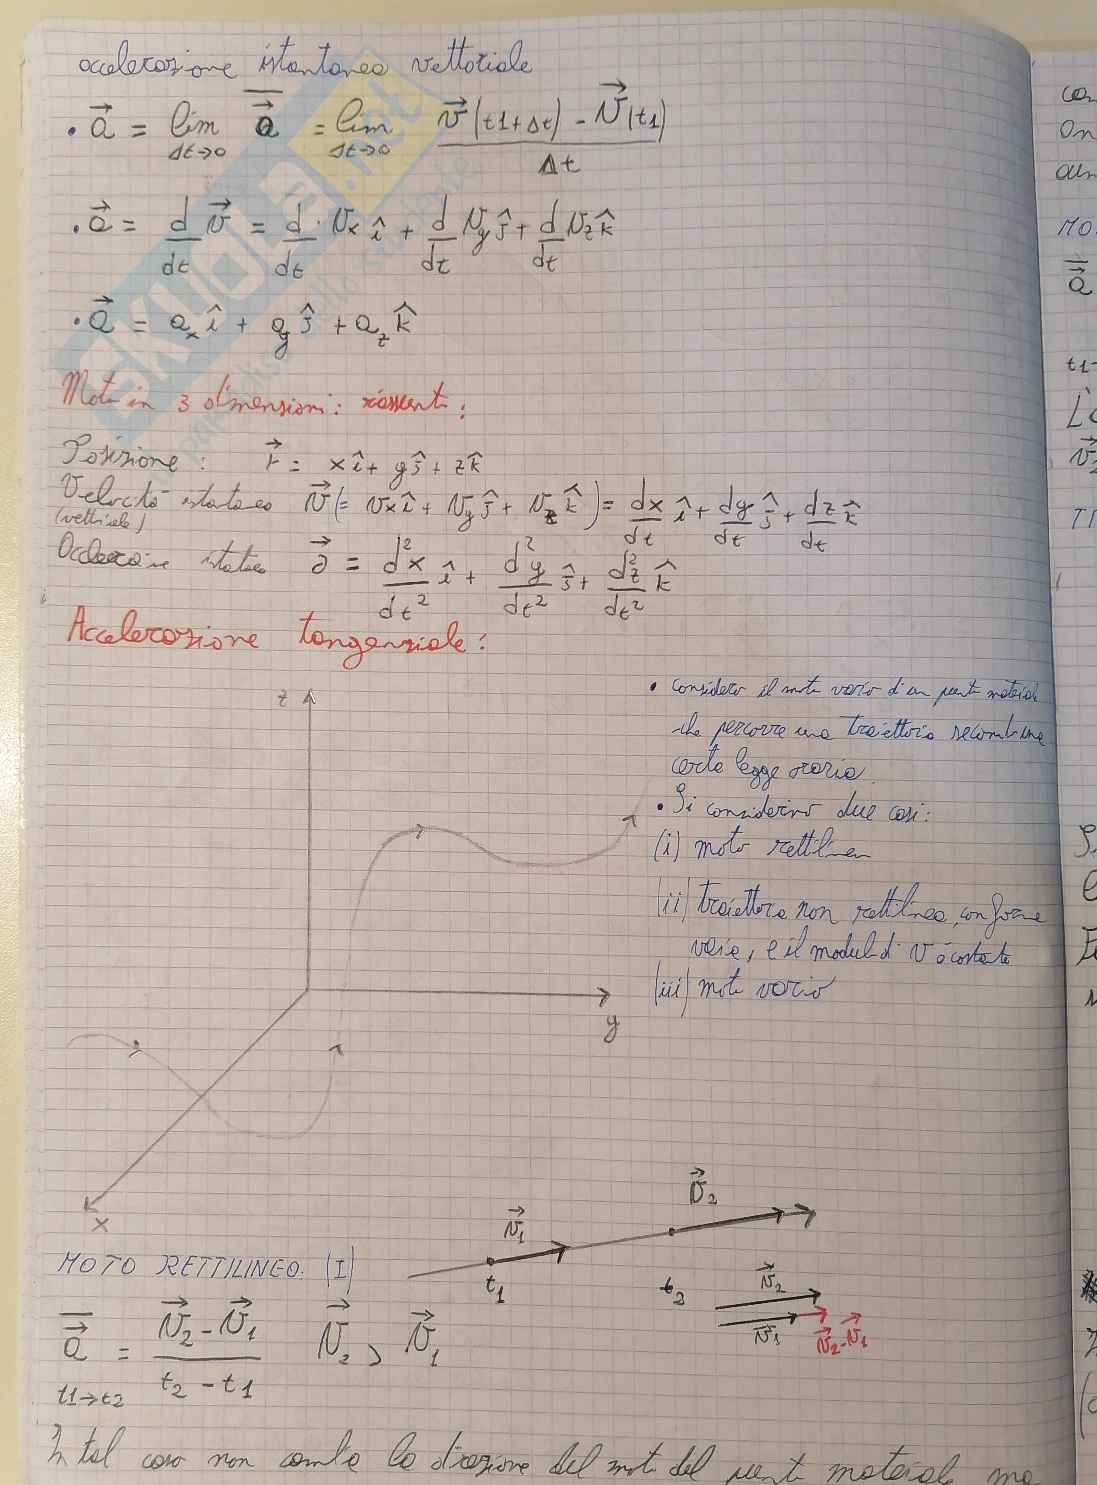 accelerazione istantanea vettoriale
• a⃗ = lim Δt→0 a⃗ = lim Δt→0 v⃗(t1+Δt) - v⃗(t1) / Δt
• a⃗ = d/dt v⃗ = d/dt · vx î + d/dt vy ĵ + d/dt vz k̂
• a⃗ = ax î + ay ĵ + az k̂
Moto in 3 dimensioni:
Posizione: r⃗ = x î + y ĵ + z k̂
Velocità istantanea v⃗ (= vx î + vy ĵ + vz k̂) = dx/dt î + dy/dt ĵ + dz/dt k̂
(vettoriale)
a⃗ = d²x/dt² î + d²y/dt² ĵ + d²z/dt² k̂
Accelerazione tangenziale:
z
y
x
• considero il moto vario d'un punto material
che percorre una traiettoria secondo una
certa legge oraria.
• Si considerino due casi:
(i) moto rettilineo
(ii) traiettoria non rettilinea, con forma
varia, e il modulo di v è costante
(iii) moto vario
v⃗1
v⃗2
t1
t2
v⃗2
v⃗1
v⃗2-v⃗1
MOTO RETTILINEO (I)
a⃗ t1→t2 = v⃗2 - v⃗1 / t2 - t1 v⃗2 > v⃗1
In tal caso non cambia la direzione del moto del punto materiale ma
con
MO
a⃗
t1
v⃗2
TI
SKUOLA.net